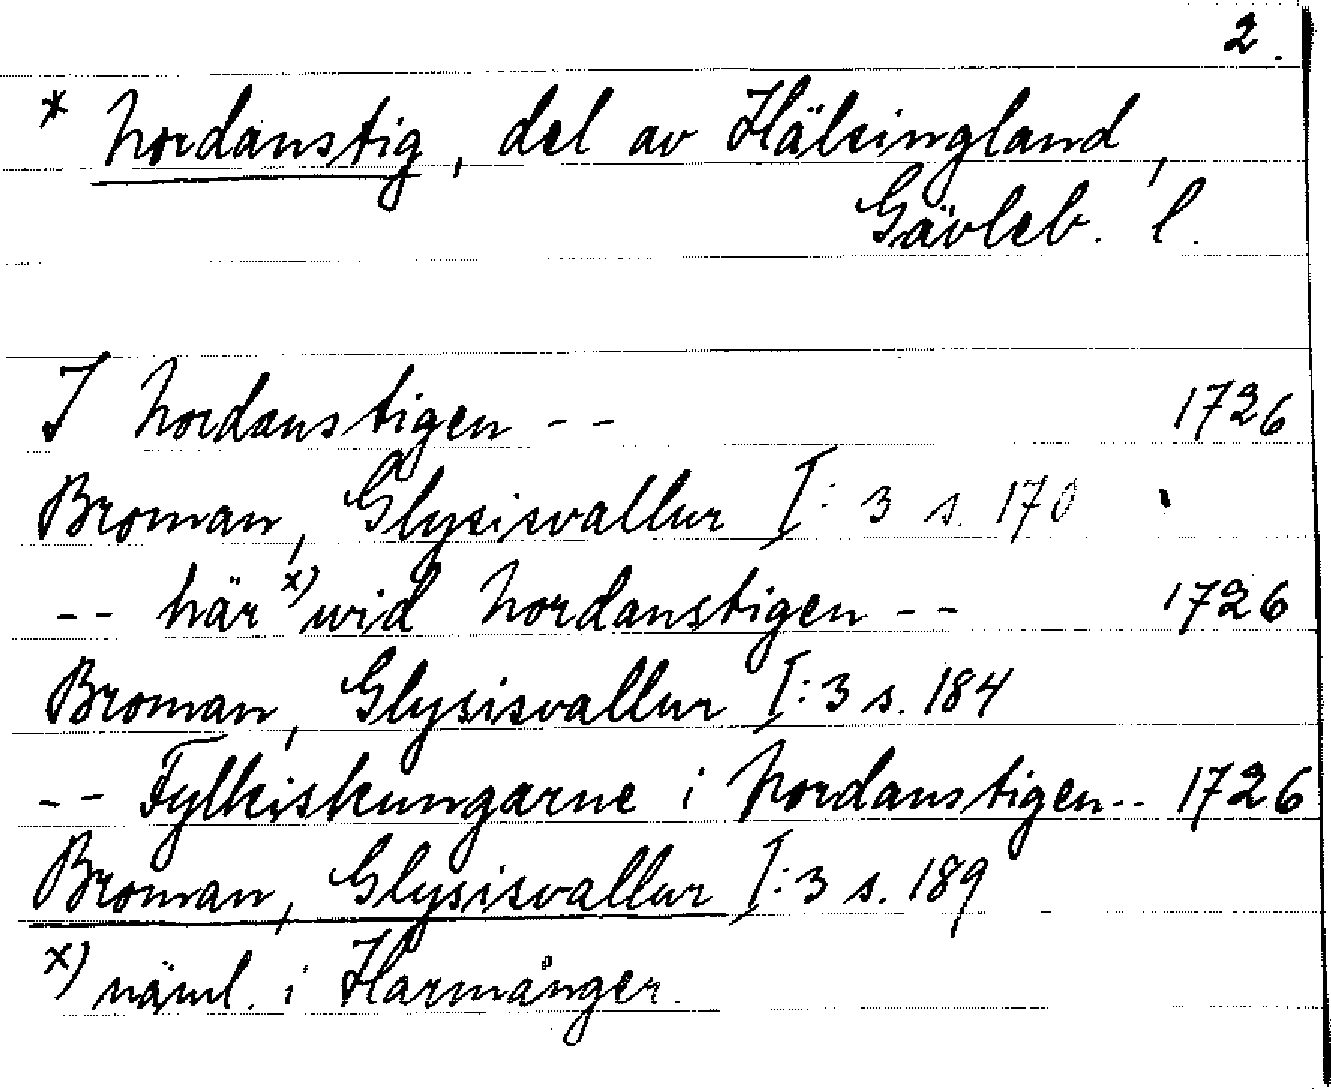 2.
* Nordanstig, del av Hälsingland,
Gävleb. l.
I Nordanstigen -- 1726
Broman, Glysisvallur I:3 s. 170
-- här x) wid Nordanstigen -- 1726
Broman, Glysisvallur I:3 s. 184
-- Fylkiskungarne i Nordanstigen -- 1726
Broman, Glysisvallur I:3 s. 189
x) näml. i Harmånger.